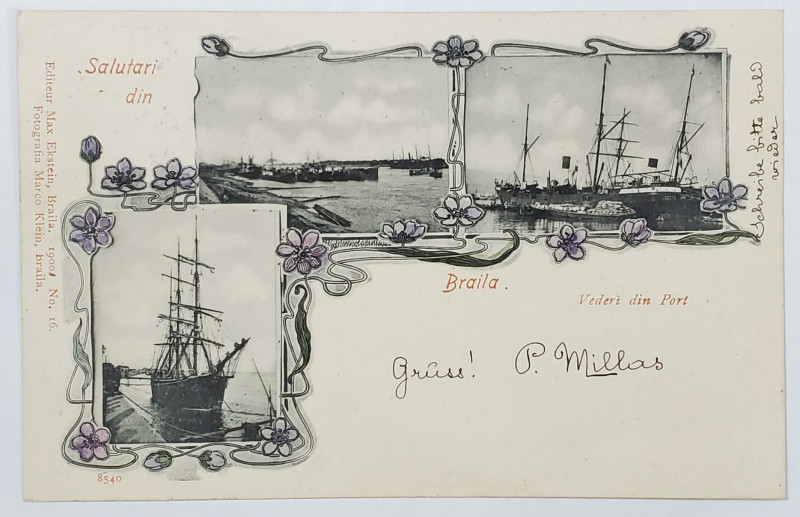 Salutari
din
Braila.
Vederi din Port
Grüss! P. Millas
Schreibe bitte bald
wieder
Editeur Max Ekstein, Braila. 1900 No. 16.
Fotografia Marco Klein, Braila.
8540